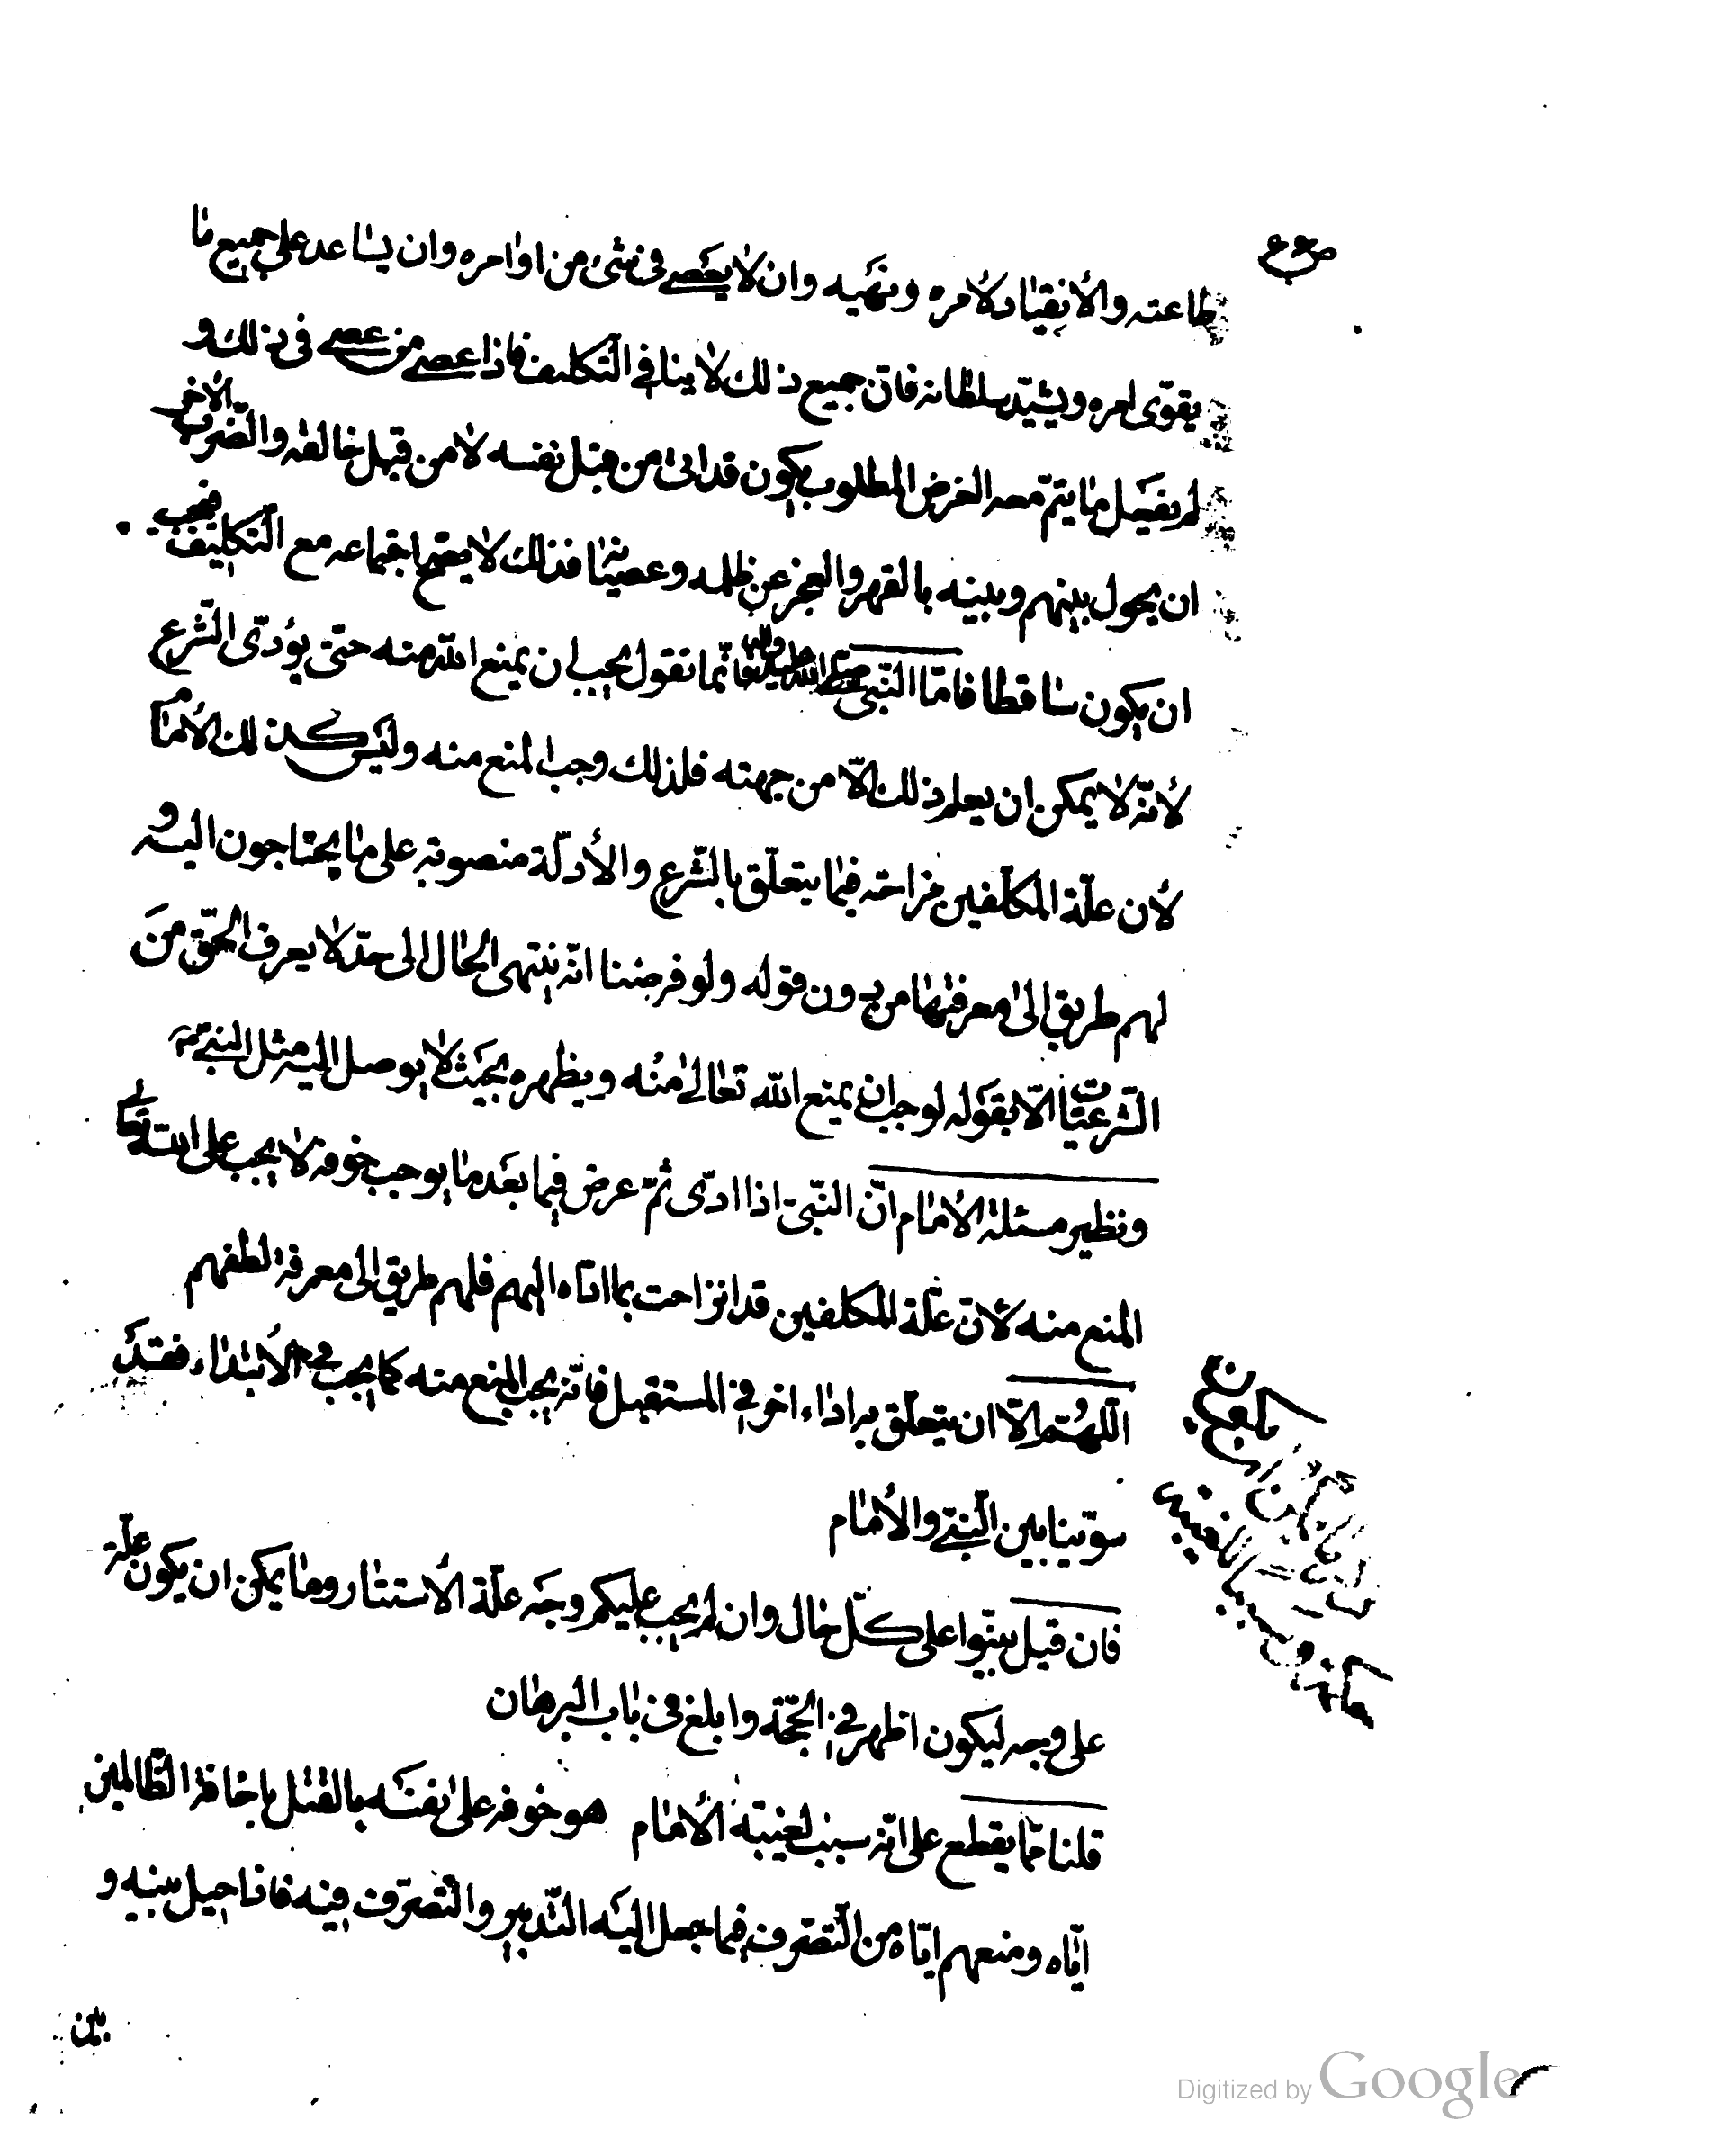 طاعته والأنقياد لأمره ونهيه وان لا يعصى فى شئ من اوامره وان يساعد على جميع ما
يقوى امره ويشيّد سلطانه فانّ جميع ذلك لا ينافى التّكليف فاذا عصى من عصى فى ذلك و
لم يفعل ما يتمّ معه الغرض المطلوب يكون قد اتى من قبل نفسه لا من قبل خالقه والضّرب الاخر
ان يحول بينهم وبينه بالقهر والعجز عن ظلمه وعصيانه فذلك لا يصّح اجتماعه مع التّكليف فيجب
ان يكون ساقطا فامّا النّبىّ صلّى الله عليه وآله فانّما نقول يجب ان يمنع الله منه حتّى يؤدّى الشّرع
لأنّه لا يمكن ان يعلم ذلك الّا من جهته فلذلك وجب المنع منه وليس كذلك الأمام
لأن علّة المكلّفين مزاحة فيما يتعلّق بالشّرع والأدلّة منصوبة على ما يحتاجون اليه و
لهم طريق الى معرفتها من دون قوله ولو فرضنا انّه ينتهى الحال الى حدّ لا يعرف الحقّ من
الشّرعيّات الّا بقوله لوجب ان يمنع الله تعالى منه ويظهره بحيث لا يوصل اليه مثل النبىّ
ونظير مسئلة الأمام انّ النّبىّ اذا ادّى ثمّ عرض فيما بعد ما يوجب خوفه لا يجب على الله تعالى
المنع منه لأنّ علّة المكلفين قد انزاحت بما ادّاه اليهم فلهم طريق الى معرفة لطفهم
اللّهمّ الّا ان يتعلق به اداء اخر فى المستقبل فانّه يجب المنع منه كما يجب فى الأبتداء فقد
سوّينا بين النّبىّ والأمام
فان قيل بيّنوا على كلّ حال وان لم يجب عليكم وجه علّة الأستتار وما يمكن ان يكون علّة
على وجه ليكون اظهر فى الحجّة وابلغ فى باب البرهان
قلنا ممّا يقطع على انّه سبب لغيبة الأمام هو خوفه على نفسه بالقتل باخافة الظّالمين
ايّاه ومنعهم ايّاه من التّصرّف فيما جعل اليه التّدبير والتّصرّف فيه فاذا حيل بينه و
بين
Digitized by Google